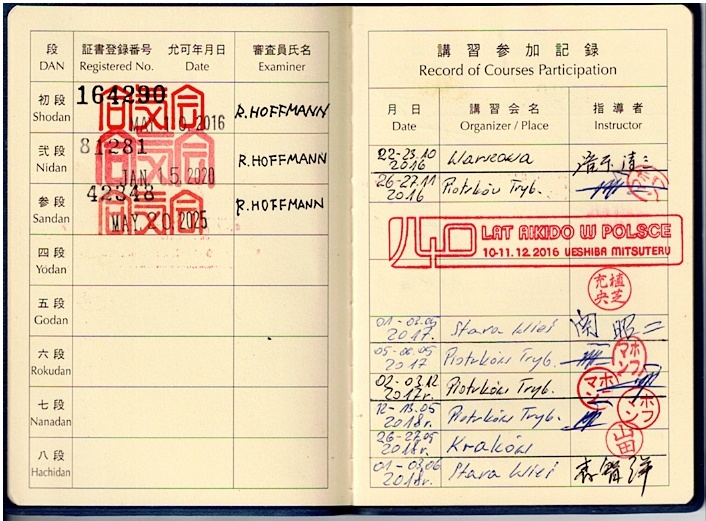 段 証書登録番号 允可年月日 審査員氏名
DAN Registered No. Date Examiner
初段 164290
Shodan MAY 10 2016 R.HOFFMANN
弐段 81281
Nidan JAN 15 2020 R.HOFFMANN
参段 42348
Sandan MAY 20 2025 R.HOFFMANN
四段
Yodan
五段
Godan
六段
Rokudan
七段
Nanadan
八段
Hachidan
講習参加記録
Record of Courses Participation
月日 講習会名 指導者
Date Organizer / Place Instructor
22-23.10 2016 Warszawa
26-27.11 2016 Piotrków Tryb.
40 LAT AIKIDO W POLSCE
10-11.12 2016 UESHIBA MITSUTERU
植芝充央
01-03.05 2017. Stara Wieś 関昭二
05-06.05 2017 Piotrków Tryb. ホフマン
02-03.12 2017r. Piotrków Tryb. ホフマン
12-13.05 2018r. Piotrków Tryb. ホフマン
26-27.05 2018r. Kraków 山田
01-03.06 2018r. Stara Wieś